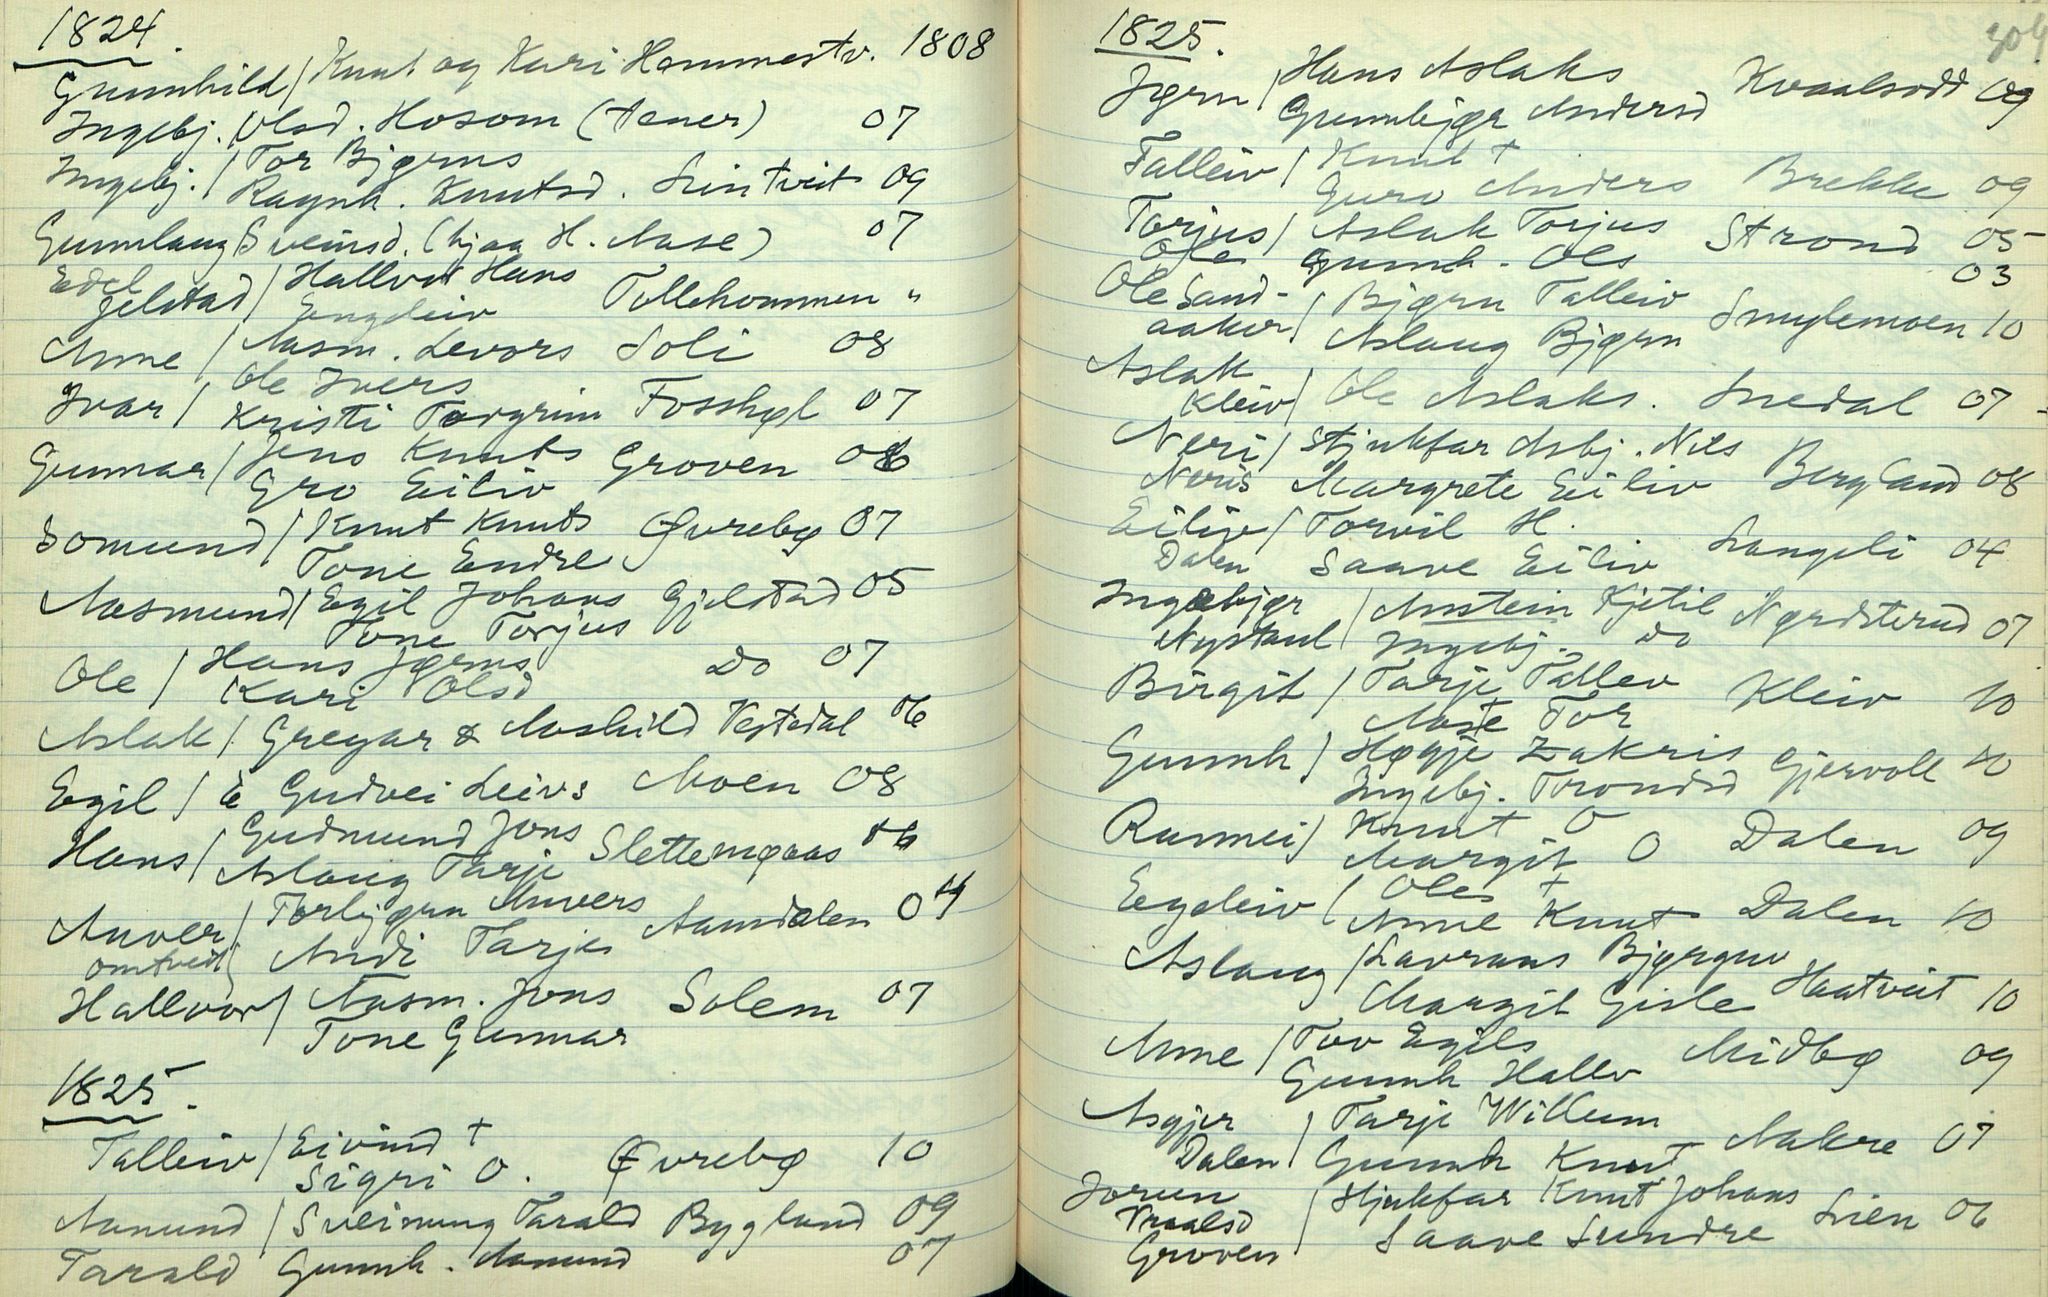 1824.
Gunnhild / Knut og Kari Hommestv. 1808
Ingebj. Olsd. Hosom (tener) 07
Ingebj. / Tor Bjørns
Ragnh. Knutsd. Lintveit 09
Gunnlaug Sveinsd. (hjaa H. Aase) 07
Edel
Jelstad / Hallvor Hans
Engeleiv Tollehommen "
Anne / Aasm. Levors Soli 08
Ivar / Ole Ivers
Kristi Torgrim Fosshøl 07
Gunnar / Jens Knuts Groven 06
Gro Eiliv
Somund / Knut Knuts Øvrebø 07
Tone Endre
Aasmund / Egil Johans Gjelstad 05
Tone Torjus
Ole / Hans Jørns Do 07
Kari Olsd
Aslak / Gregar & Aashild Vestdal 06
Egil / E Gudvei Leivs Moen 08
Hans / Gudmund Jons Slettemøaas 06
Aslaug Tarje
Anver / Torbjørn Anvers Aamdalen 04
Omtveit Andi Tarje
Hallvor / Aasm. Jons Solem 07
Tone Gunnar
1825.
Talleiv / Eivind †
Sigri O. Øvrebø 10
Aamund / Sveinung Tarald Bygland 09
Tarald Gunnh. Aamund 07
1825. 304
Jørn / Hans Aslaks Kvaalsodd 09
Gunnbjør Andersd
Talleiv / Knut †
Guro Anders Brekke 09
Torjus / Aslak Torjus Strond 05
Ole Gunnh. Ols 03
Ole Sand-
aaker / Bjørn Talleiv Smylemoen 10
Aslaug Bjørn
Aslak
Kleiv / Ole Aslaks. Snedal 07
Neri / Stjukfar Asbj. Nils
Neris Margrete Eiliv Bergland 08
Eiliv / Torvil H.
Dalen Saave Eiliv Langeli 04
Ingebjør / Anstein Kjetil Nørdsterud 07
Nystaul Ingebj. do
Birgit / Tarje Tallev Kleiv 10
Aaste Tor
Gunnh / Høgje Zakris Gjervoll 10
Ingebj. Trondsd
Runnei / Knut O
Margit O Dalen 09
Egeleiv / Oles †
Anne Knut Dalen 10
Aslaug / Lavrans Bjørguv
Margit Gisle Haatveit 10
Anne / Tov Egils Midbø 09
Gunnh Hallv
Asgjer / Tarje Willum
Dalen Gunnh Knut Aakre 07
Jorun / Stjukfar Knut Johans
Vraalsd Saave Sundre Lien 06
Groven